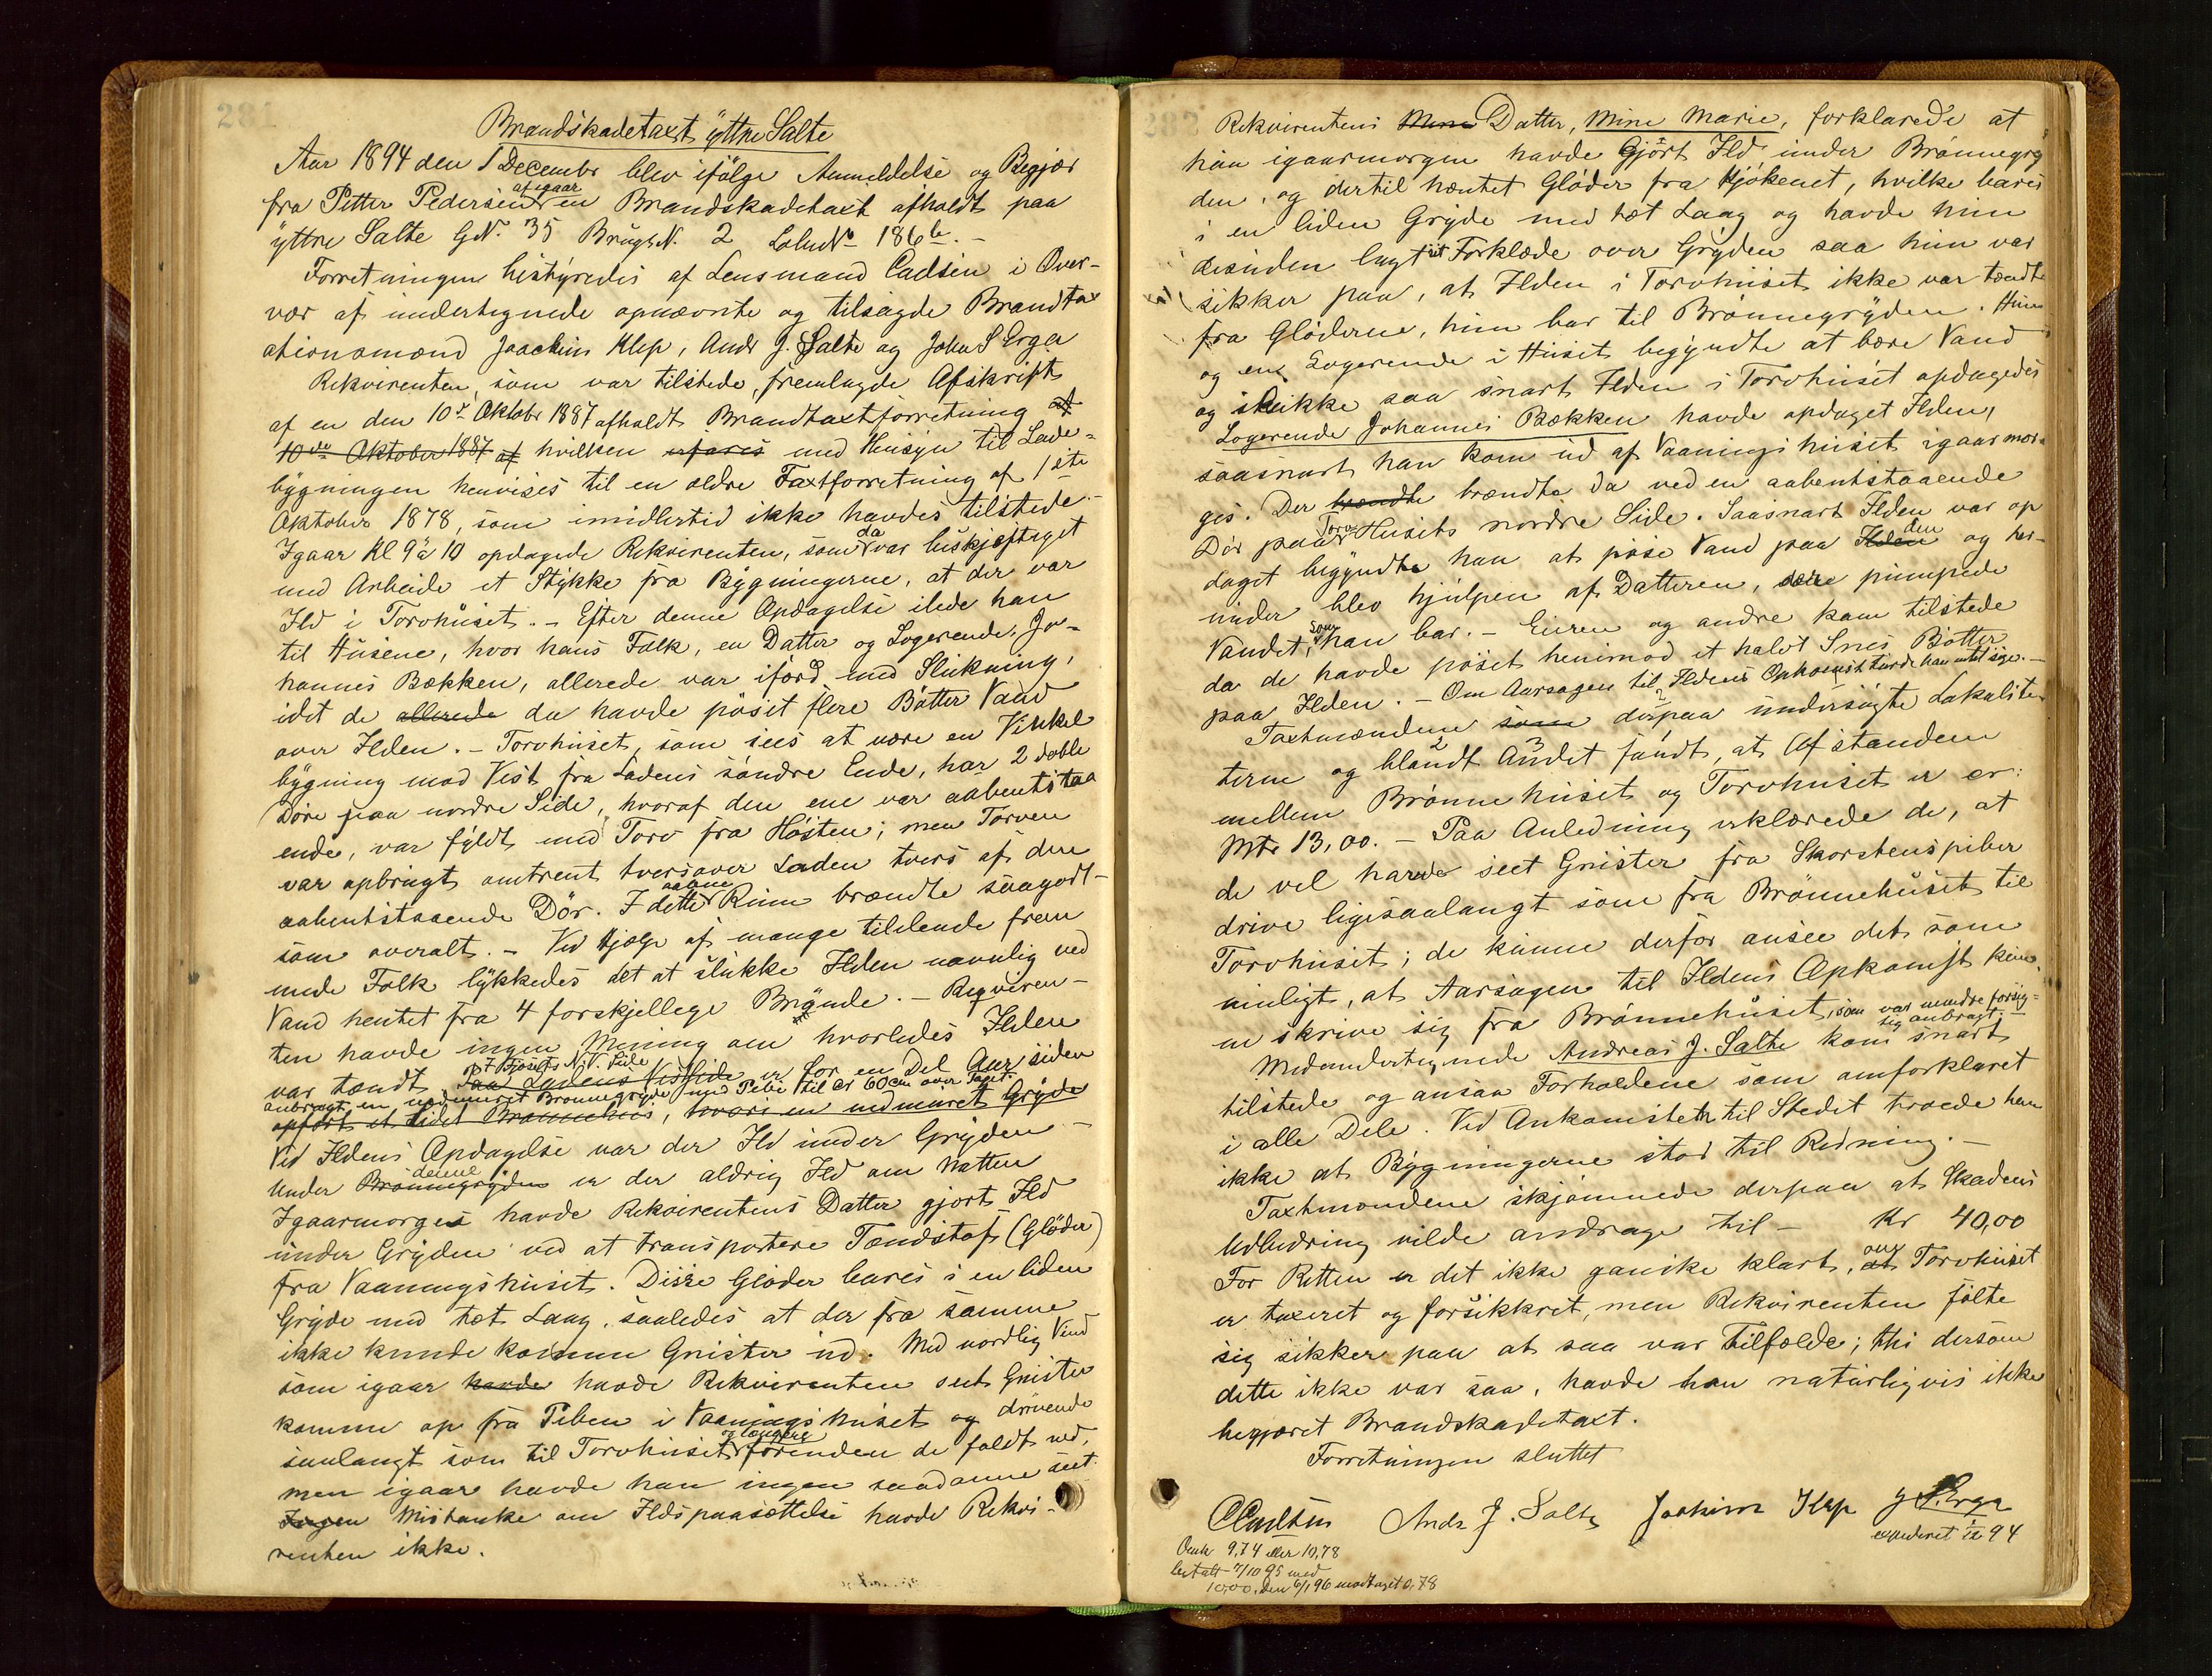 281
Brandskadetaxt ÿttre Salte
Aar 1894 den 1 Decembr blev ifölge Anmeldelse og Begjær
fra Petter Pedersen af igaar en Brandskadetaxt afholdt paa
ÿttre Salte GN. 35 BrugsN. 2 LøbeNo 186 b. -
Forretningen bestÿredes af Lensmand Carlsen i Over-
vær af undertegnede opnævnte og tilsagde Brandtax
ationsmænd Joachim Klep, Andr J. Salte og John S Erga
Rekvirenten, som var tilstede, fremlagde Afskrift
af en den 10de Oktobr 1887 afholdt Brandtaxtforretning af
10de Oktober 1887 af hvilken erfares med Hensyn til Lade-
bÿgningen henvises til en ældre Taxtforretning af 1ste
Oktober 1878, som imidlertid ikke havdes tilstede. -
Igaar Kl 9 à 10 opdagede Rekvirenten, som da var beskjæftiget
med Arbeide et Stÿkke fra Bÿgningerne, at der var
Ild i Torvhuset. - Efter denne Opdagelse ilede han
til Husene, hvor hans Folk, en Datter og Logerende, Jo-
hannes Bækken, allerede var iførd med Slukning,
idet de allerede da havde pöset flere Bötter Vand
over Ilden. - Torvhuset, som sees at være en Vinkel
bÿgning mod Vest fra Ladens søndre Ende, har 2 doble
Döre paa nordre Side, hvoraf den ene var aabentstaa
ende, var fÿldt med Torv fra Høsten; men Torven
var opbrugt omtrent tversover Laden tvers af den
aabentstaaende Dör. I dette aabne Rum brændte saagodt-
som overalt. - Ved Hjælp af mange tililende frem
mede Folk lÿkkedes det at slukke Ilden navnlig ved
Vand hentet fra 4 forskjellege Brønde. - Reqviren-
ten havde ingen Mening om hvorledes Ilden
var tændt. I Fjösets N.V. Side Paa Ladens Vestside er for en Del Aar siden
anbragt en nedmuret Brønnegrÿde med Pibe til ct 60 cm over Taget.
opført et lidet Brønnehus, hvori en nedmuret Grÿde
Ved Ildens Opdagelse var der Ild under Grÿden -
Under denne Brønnegrÿden er der aldrig Ild om Natten
Igaarmorges havde Rekvirentens Datter gjort Ild
under Grÿden ved at transportere Tændstof (Glöder)
fra Vaaningshuset. Disse Glöder bares i en liden
Grÿde med tæt Laag, saaledes at der fra samme
ikke kunde komme Gnister ud. Med nordlig Vind
som igaar havde havde Rekvirenten seet Gnister
komme op fra Piben i Vaaningshuset og drivende
saalangt som til Torvhuset og længere førenden de faldt ned,
men igaar havde han ingen saadanne seet
Ingen Mistanke om Ildspaasættelse havde Rekvi-
renten ikke.
282
Rekvirentens Mine Datter, Mine Marie, forklarede at
hun igaarmorgen havde Gjört Ild under Brønnegrÿ
den, og dertil hæntet Glöder fra Kjökenet, hvilke bares
i en liden Grÿde med tæt Laag og havde hun
desuden lagt sit Forklæde over Grÿden saa hun var
sikker paa, at Ilden i Torvhuset ikke var tændt
fra Glöderne, hun bar til Brønnegrÿden. Hun
og en Logerende i Huset begÿndte at bære Vand
og slukke saa snart Ilden i Torvhuset opdagedes
Logerende Johannes Bækken havde opdaget Ilden,
saasnart han kom ud af Vaaningshuset igaarmor-
ges. Der brændte brændte da ved en aabentstaaende
Dör paa Torv Husets nordre Side. Saasnart Ilden var op
daget begÿndte han at pöse Vand paa Ilden den og her-
under blev hjulpen af Datteren, der pumpede
Vandet, som han bar. - Eieren og andre kom tilstede
da de havde pöset henimod et halvt Snes Bötter
paa Ilden. - Om Aarsagen til Ildens Opkomst turde han intet sige. -
Taxtmændene som derpaa undersøgte Lokalite
terne og blandt Andet fandt, at Afstanden
mellem Brønnehuset og Torvhuset er er:
Mtr 13,00. - Paa Anledning erklærede de, at
de vel havde seet Gnister fra Skorstenspiber
drive ligesaalangt som fra Brønnehuset til
Torvhuset; de kunne derfor ansee det som
muligt, at Aarsagen til Ildens Opkomst kun-
ne skrive sig fra Brønnehuset, som var mindre forsig-
tig anbragt. -
Medundertegnede Andreas J. Salte kom snart
tilstede og ansaa Forholdene som omforklaret
i alle Dele. Ved Ankomsten til Stedet troede han
ikke at Bÿgningerne stod til Redning. -
Taxtmændene skjønnede derpaa at Skadens
Udbedring vilde andrage til - Kr 40,00
For Retten er det ikke ganske klart, at om Torvhuset
er taxeret og forsikkret, men Rekvirenten fölte
sig sikker paa at saa var Tilfælde; thi dersom
dette ikke var saa, havde han naturligvis ikke
begjæret Brandskadetaxt.
Forretningen sluttet
CCarlsen Andr J. Salte Joakim Klep J S. Erga
94
9,74 eller 10,78
betalt 7/10 95 med
10,00, den 6/1 96 modtaget 0,78